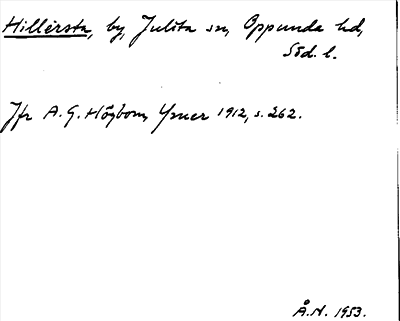 Hillersta, by, Julita sn, Oppunda hd,
Söd. l.
Jfr A. G. Högbom, Ymer 1912, s. 262.
Å.N. 1953.